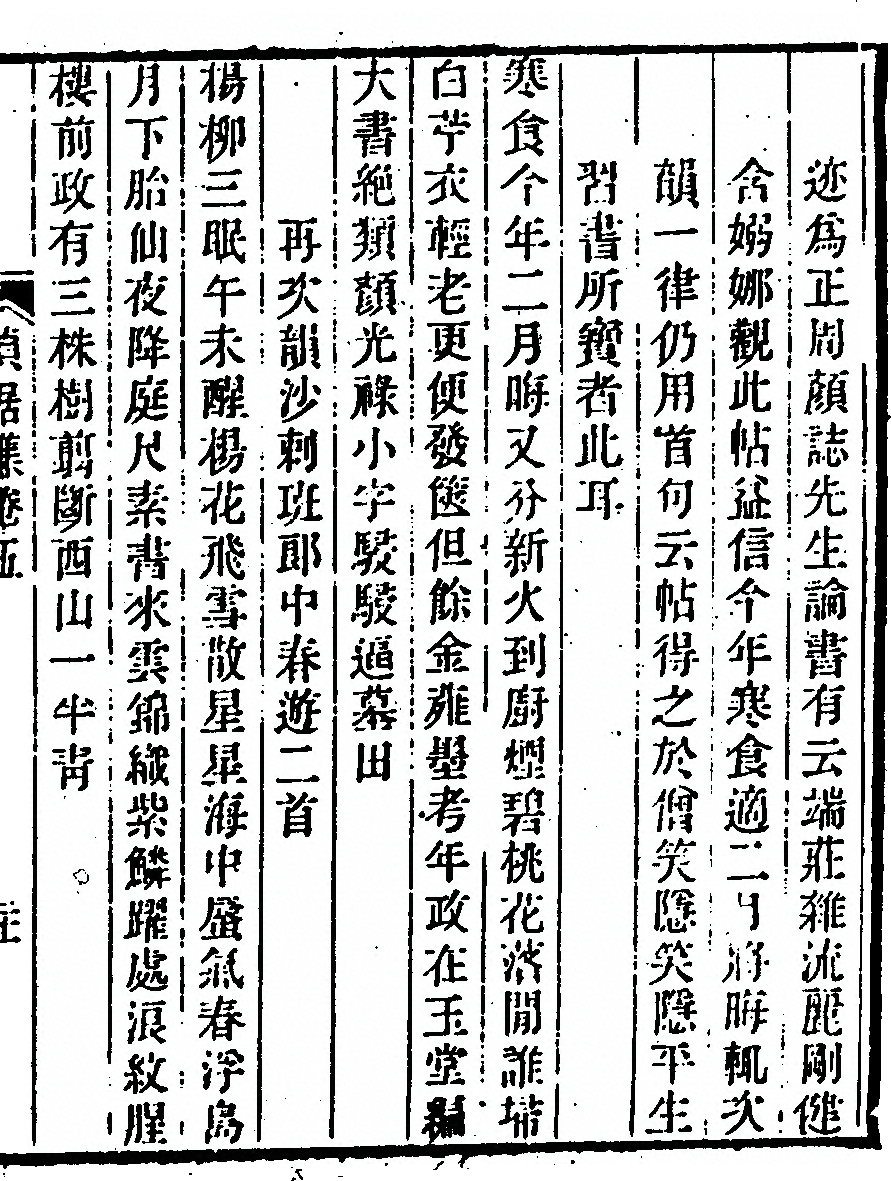 迹爲正周顏誌先生論書有云端莊雜流麗剛健
含婀娜觀此帖益信今年寒食適二月將晦輒次
韻一律仍用首句云帖得之於僧笑隱笑隱平生
習書所寶者此耳
寒食今年二月晦又分新火到廚煙碧桃花落閒誰埽
白苧衣輕老更便發篋但餘金薤墨考年政在玉堂編
大書絶類顏光祿小字駸駸逼慕田
再次韻沙剌班郎中春遊二首
楊柳三眠午未醒楊花飛雪散星星海中蜃氣春浮島
月下胎仙夜降庭尺素書來雲錦織紫鱗躍處浪紋腥
樓前政有三株樹剪斷西山一半靑
貞居集卷五